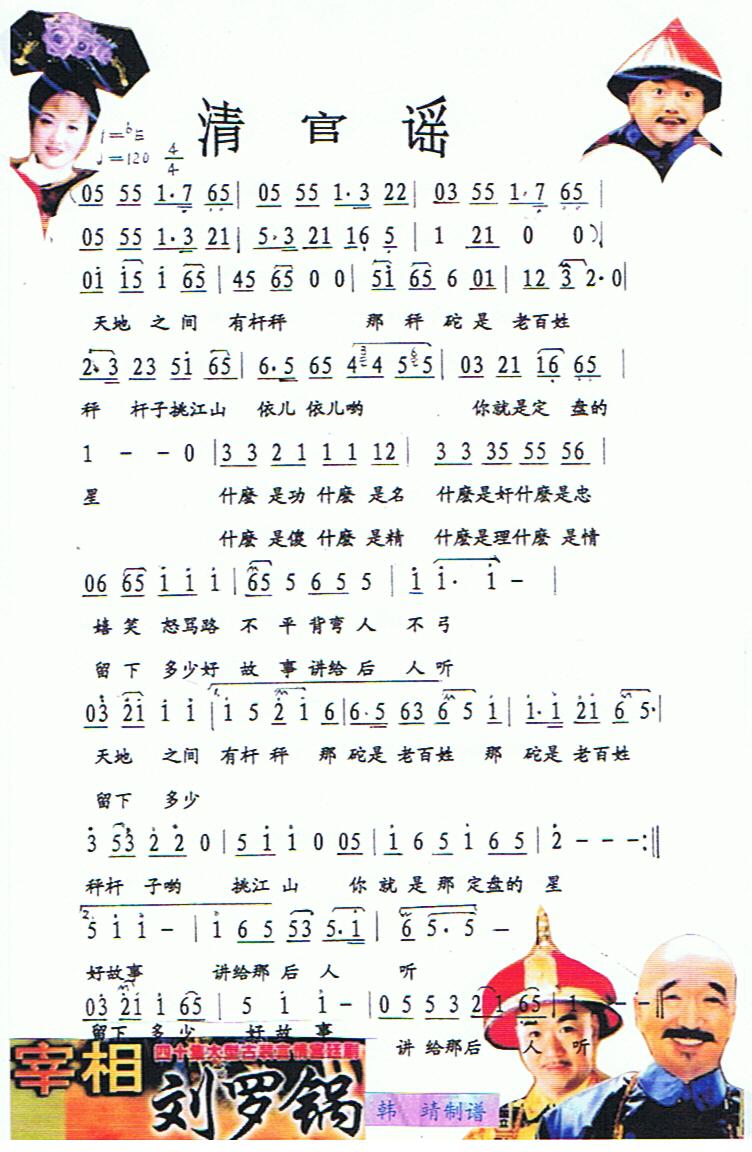 清官谣
1=♭E
♩=120 4/4
(05 55 1·7 65 | 05 55 1·3 22 | 03 55 1·7 65 |
05 55 1·3 21 | 5·3 21 16 5 | 1 21 0 0) |
01 15 1 65 | 45 65 0 0 | 51 65 6 01 | 12 3 2·0 |
天地 之间 有杆秤 那 秤 砣是 老百姓
2·3 23 51 65 | 6·5 65 4 4 5 5 | 03 21 16 65 |
秤 杆子挑江山 依儿依儿哟 你就是定 盘的
1 - - 0 | 3 3 2 1 1 1 12 | 3 3 35 55 56 |
星 什麽 是功 什麽 是名 什麽是奸什麽是忠
什麽 是傻 什麽 是精 什麽是理什麽 是情
06 65 1 1 1 | 65 5 6 5 5 | 1 1· 1 - |
嬉 笑 怒骂路 不 平 背弯 人 不 弓
留 下 多少好 故 事 讲给 后 人 听
03 21 1 1 | 1. 1 5 2 1 6 | 6·5 63 6 5 1 | 1·1 21 6 5· |
天地 之间 有杆 秤 那 砣是 老百姓 那 砣是 老百姓
留下 多少
3 53 2 2 0 | 5 1 1 0 05 | 1 6 5 1 6 5 | 2 - - - :‖
秤杆 子哟 挑江 山 你 就 是 那 定盘的 星
2. 5 1 1 - | 1 6 5 53 5·1 | 6 5·5 -
好故事 讲给那 后 人 听
03 21 1 65 | 5 1 1 - | 0 5 5 3 2 1 65 | 1 - - ‖
留下 多 少 好 故 事 讲 给那后 人 听
四十集大型古装言情宫廷剧
宰相
刘罗锅
韩 靖制谱